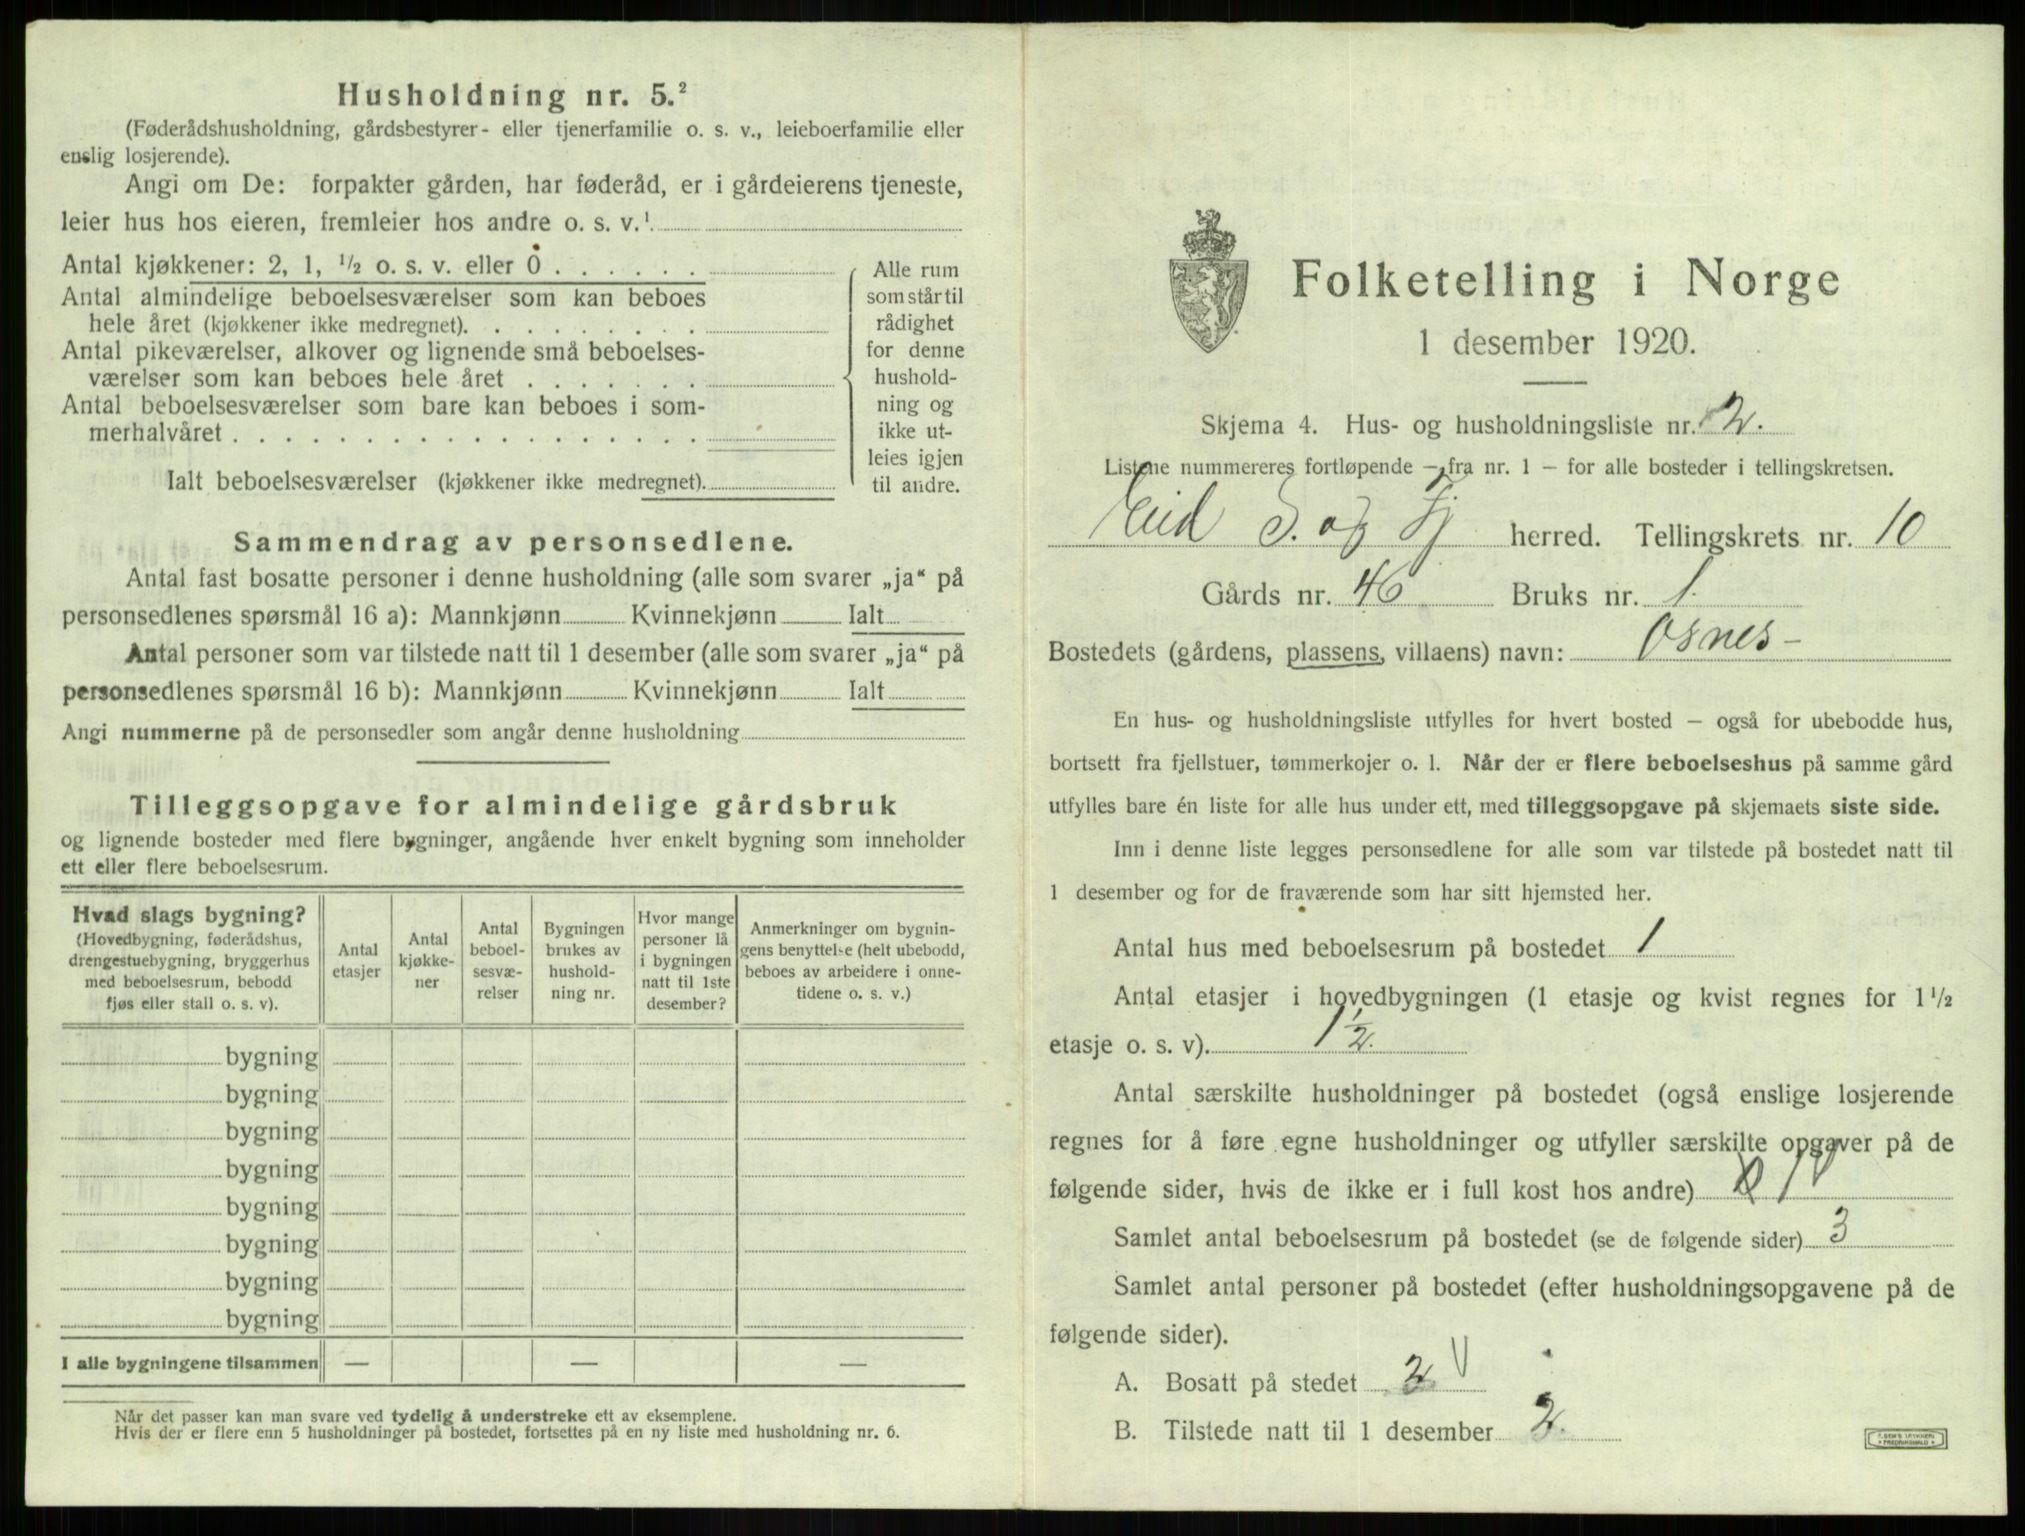 Husholdning nr. 5.²
(Føderådshusholdning, gårdsbestyrer- eller tjenerfamilie o. s. v., leieboerfamilie eller
enslig losjerende).
Angi om De: forpakter gården, har føderåd, er i gårdeierens tjeneste,
leier hus hos eieren, fremleier hos andre o. s. v.¹
Antal kjøkkener: 2, 1, ½ o. s. v. eller 0 . . . . . .
Antal almindelige beboelsesværelser som kan beboes
hele året (kjøkkener ikke medregnet). . . . . . . . .
Antal pikeværelser, alkover og lignende små beboelses-
værelser som kan beboes hele året . . . . . . .
Antal beboelsesværelser som bare kan beboes i som-
merhalvåret . . . . . . . . . . . . . . . . . .
Ialt beboelsesværelser (kjøkkener ikke medregnet).
Alle rum
som står til
rådighet
for denne
hushold-
ning og
ikke ut-
leies igjen
til andre.
Sammendrag av personsedlene.
Antal fast bosatte personer i denne husholdning (alle som svarer „ja“ på
personsedlenes spørsmål 16 a): Mannkjønn Kvinnekjønn Ialt
Antal personer som var tilstede natt til 1 desember (alle som svarer „ja“ på
personsedlenes spørsmål 16 b): Mannkjønn Kvinnekjønn Ialt
Angi nummerne på de personsedler som angår denne husholdning
Tilleggsopgave for almindelige gårdsbruk
og lignende bosteder med flere bygninger, angående hver enkelt bygning som inneholder
ett eller flere beboelsesrum.
Hvad slags bygning?
(Hovedbygning, føderådshus,
drengestuebygning, bryggerhus
med beboelsesrum, bebodd
fjøs eller stall o. s. v).
Antal
etasjer
Antal
kjøkke-
ner
Antal
beboel-
sesvæ-
relser
Bygningen
brukes av
hushold-
ning nr.
Hvor mange
personer lå
i bygningen
natt til 1ste
desember?
Anmerkninger om bygnin-
gens benyttelse (helt ubebodd,
beboes av arbeidere i onne-
tidene o. s. v.)
bygning
bygning
bygning
bygning
bygning
bygning
bygning
bygning
I alle bygningene tilsammen — — —
Når det passer kan man svare ved tydelig å understreke ett av eksemplene.
Hvis der er flere enn 5 husholdninger på bostedet, fortsettes på en ny liste med husholdning nr. 6.
Folketelling i Norge
1 desember 1920.
Skjema 4. Hus- og husholdningsliste nr. 2.
Listene nummereres fortløpende — fra nr. 1 — for alle bosteder i tellingskretsen.
Eid S. og Fj herred. Tellingskrets nr. 10
Gårds nr. 46 Bruks nr. 1.
Bostedets (gårdens, plassens, villaens) navn: Osnes –
En hus- og husholdningsliste utfylles for hvert bosted — også for ubebodde hus,
bortsett fra fjellstuer, tømmerkojer o. l. Når der er flere beboelseshus på samme gård
utfylles bare én liste for alle hus under ett, med tilleggsopgave på skjemaets siste side.
Inn i denne liste legges personsedlene for alle som var tilstede på bostedet natt til
1 desember og for de fraværende som har sitt hjemsted her.
Antal hus med beboelsesrum på bostedet 1
Antal etasjer i hovedbygningen (1 etasje og kvist regnes for 1½
etasje o. s. v). 1½.
Antal særskilte husholdninger på bostedet (også enslige losjerende
regnes for å føre egne husholdninger og utfyller særskilte opgaver på de
følgende sider, hvis de ikke er i full kost hos andre) 1
Samlet antal beboelsesrum på bostedet (se de følgende sider) 3
Samlet antal personer på bostedet (efter husholdningsopgavene på de
følgende sider).
A. Bosatt på stedet 2
B. Tilstede natt til 1 desember 2.